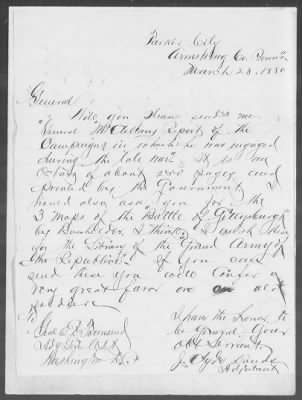 Parker City
Armstrong Co. Penna
March 23. 1880
General
Will you please send me
"General McClellans report of the
Campaigns in which he was engaged
during the late war". It is an
Octavo of about 250 pages and
printed by the Government. I
would also ask you for the
"3 Maps of the Battle of Gettysburg"
by Bachelder. I think, I wish these
for the Library of the Grand Army of
the Republic". If you can
send these you will confer a
very great favor
To
E. D. Townsend
Adj Gen U.S.A
Washington D.C.
I have the honor to
be General Your
obt Servant
J.
Adjutant